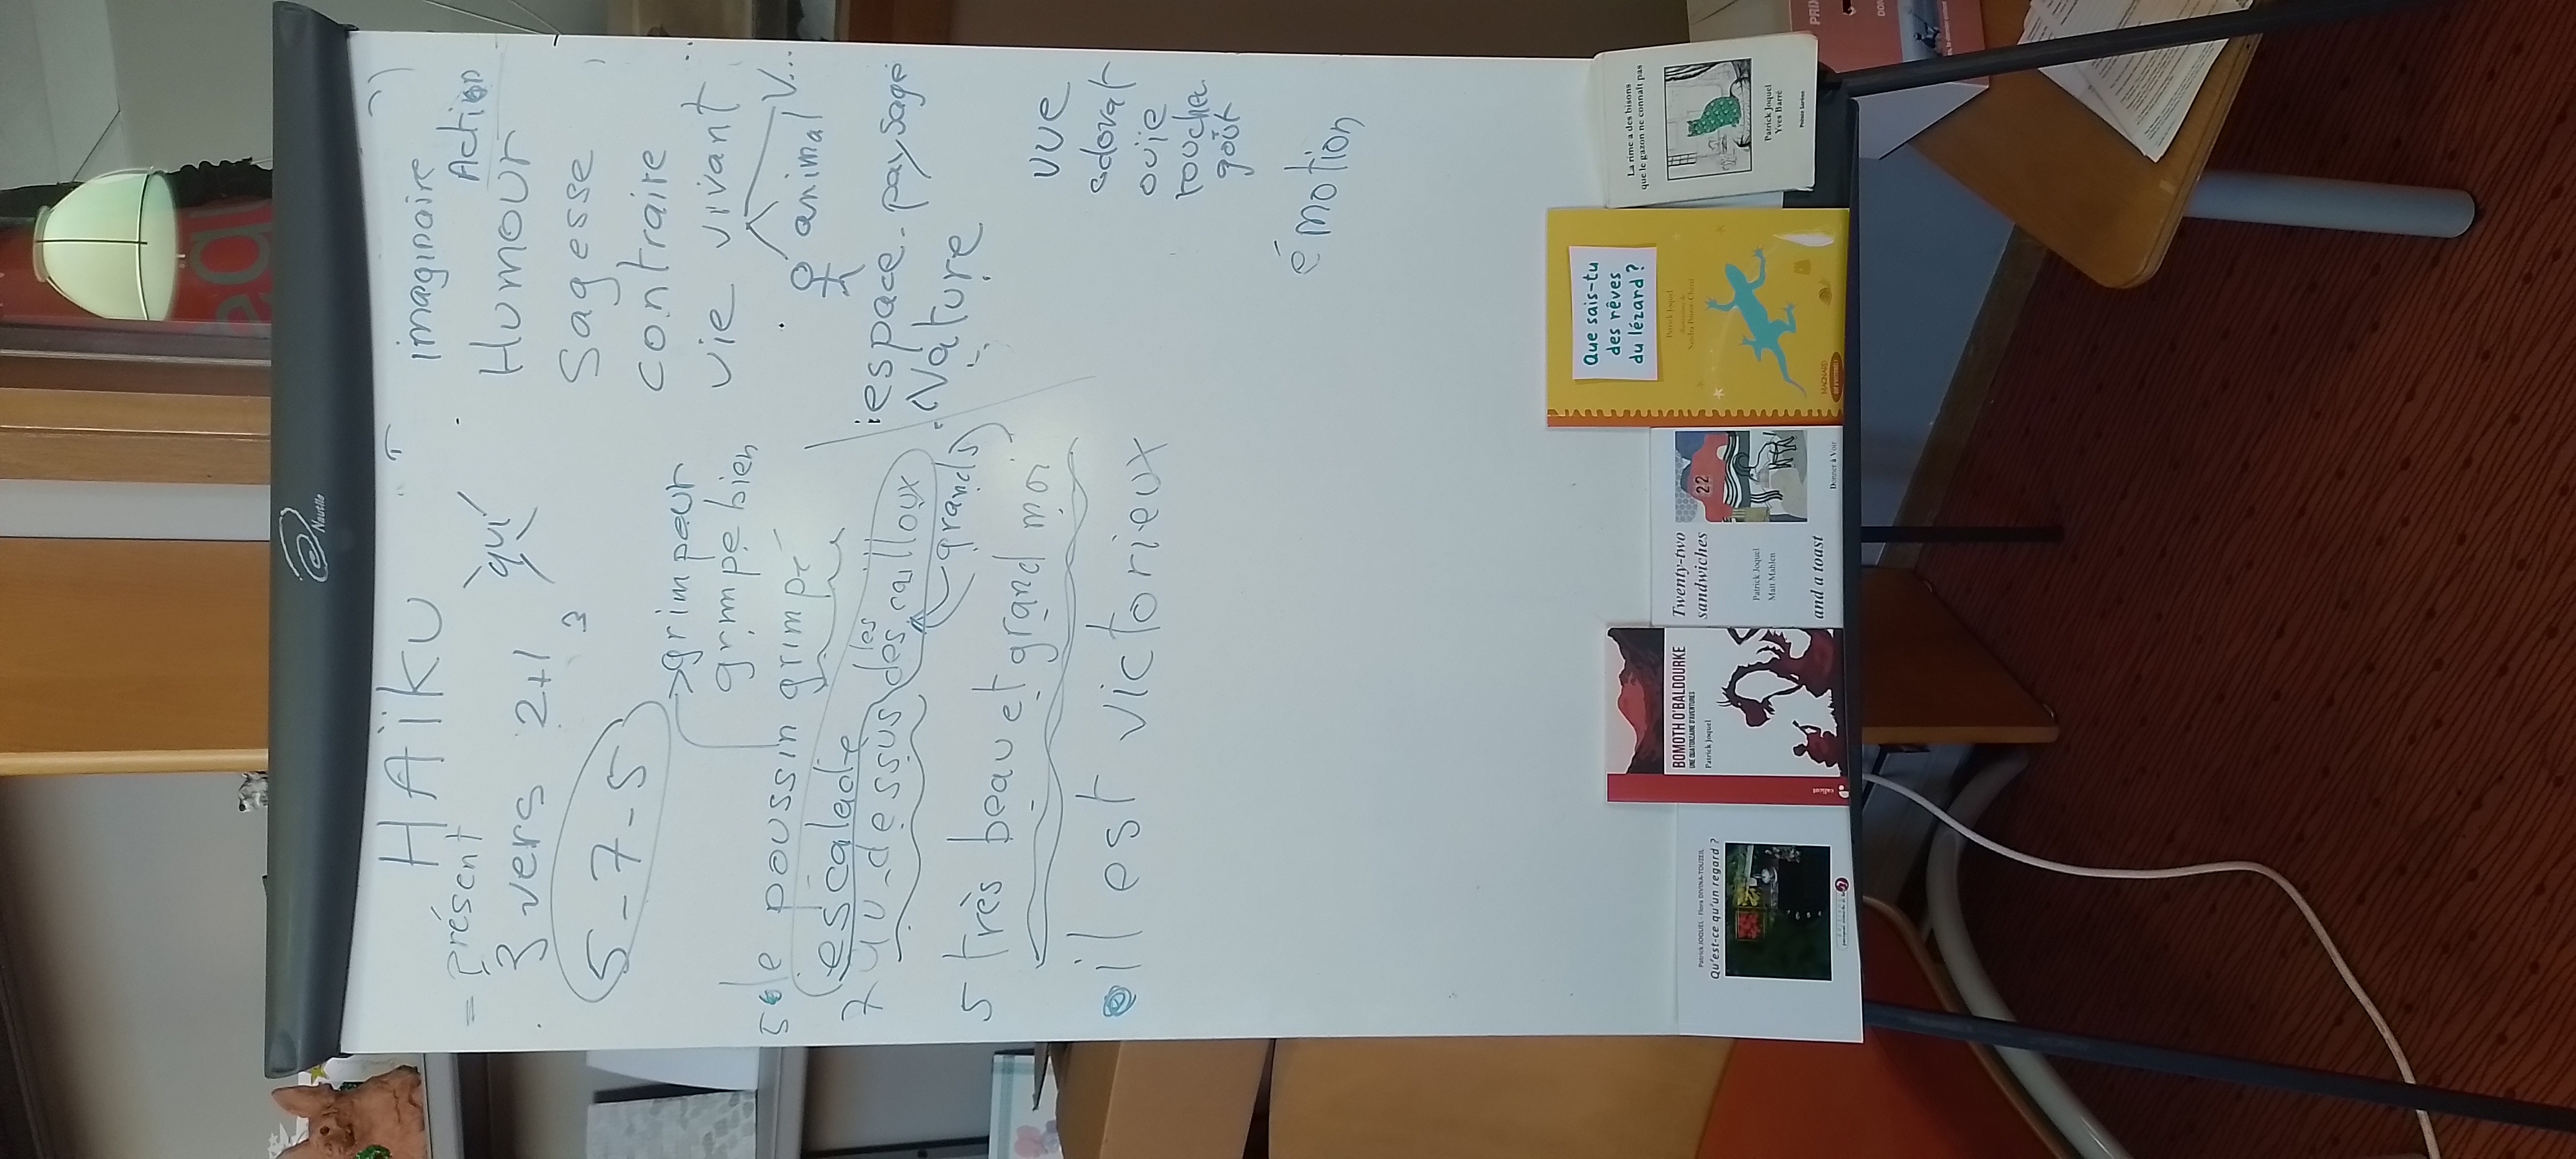 Nautile
HAïKU
= Présent
3 vers 2+1
3
5-7-5
"qui"
imaginaire
Action
Humour
Sagesse
contraire
vie vivant
animal V...
espace. paysage
Nature
vue
odorat
ouïe
toucher
goût
émotion
grimpeur
grimpe bien
5 le poussin grimpé
(escalade les cailloux
7 au-dessus des
(grands)
5 très beau et grand moi
il est victorieux
Patrick JOQUEL - Flora DIVINA-TOUZEIL
Qu'est-ce qu'un regard ?
BOMOTH O'BALDOURKE
UNE QUATORZAINE D'AVENTURES
Patrick Joquel
calicot
22
Twenty-two
sandwiches
Patrick Joquel
Matt Mahlen
and a toast
Donner à Voir
Que sais-tu
des rêves
du lézard ?
Patrick Joquel
MAGNARD
La rime a des bisons
que le gazon ne connaît pas
Patrick Joquel
Yves Barré
PRI
DON